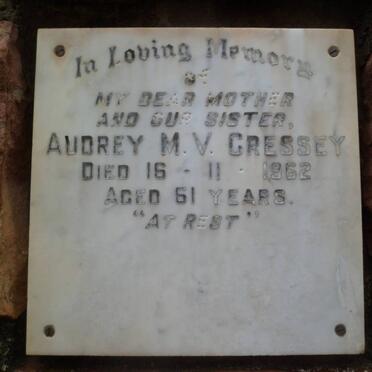 In Loving Memory
of
MY DEAR MOTHER
AND OUR SISTER,
AUDREY M. V. CRESSEY
DIED 16 - 11 - 1962
AGED 61 YEARS.
"AT REST"